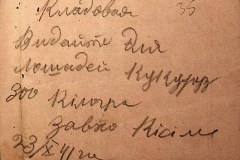 Кладовая 35
Видайте для
лошадей кукуруз
300 Кілогра
Завхо Кісіль
23/X 41